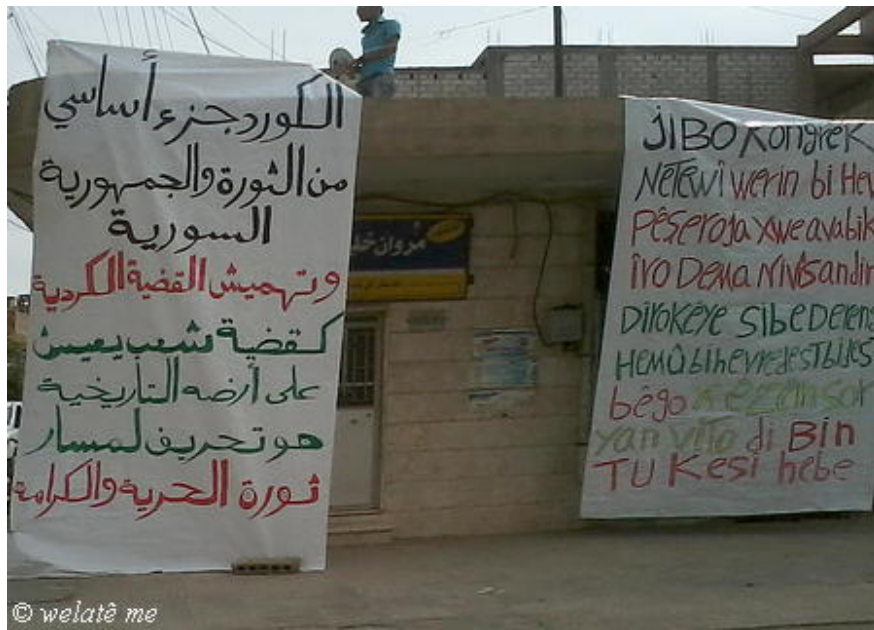 الكورد جزء أساسي
من الثورة والجمهورية
السورية
وتهميش القضية الكردية
كقضية شعب يعيش
على أرضه التاريخية
هو تحريف لمسار
ثورة الحرية والكرامة
مروان
JIBO KongreK
NETEWÎ werin bi Hev
PÊŞeroja xwe avabik
ÎRO DEMA NIVîsandin
DîroKêye SIBE Dereng
HEMÛ bi hevre desT bi des
bêgo rêzansor
yan vîto di Bin
TU Kesî hebe
© welatê me